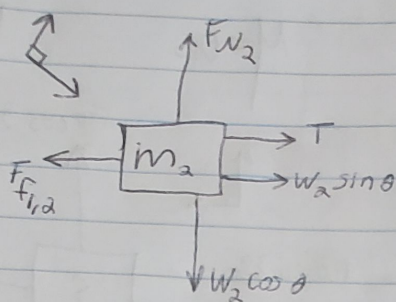 F_N₂
T
F_f₁,₂
m₂
W₂ sinθ
W₂ cosθ